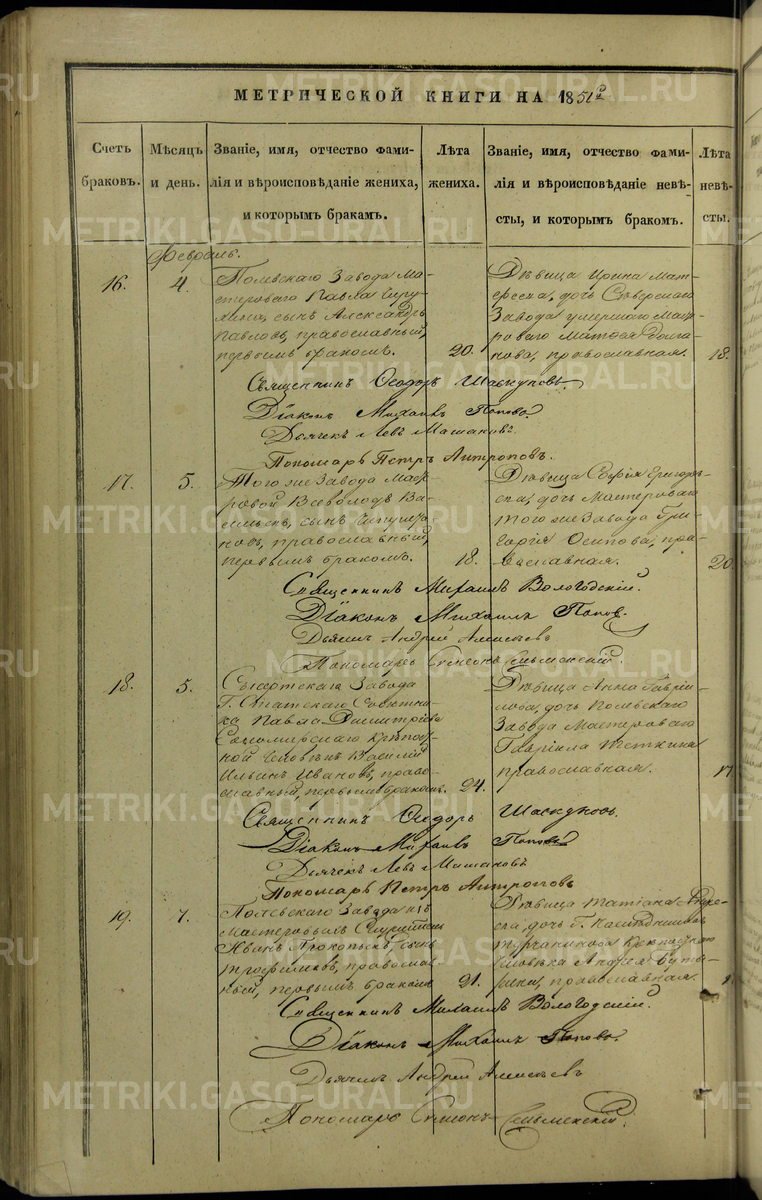 МЕТРИЧЕСКОЙ КНИГИ НА 1851г
Счетъ браковъ.
Мѣсяцъ и день.
Званіе, имя, отчество фами-
лія и вѣроисповѣданіе жениха,
и которымъ бракамъ.
Лѣта жениха.
Званіе, имя, отчество фами-
лія и вѣроисповѣданіе невѣ-
сты, и которымъ бракомъ.
Лѣта невѣ-
сты.
Февраль.
16.
4.
Полевскаго Завода Ма-
стероваго Павла
сынъ Александръ
Павловъ, православный,
первымъ бракомъ.
20.
Дѣвица Ирина Мат-
ѳеева, дочь Сѣверскаго
Завода умершаго Масте-
роваго Матѳея Долга-
нова, православная.
18.
Священникъ Ѳеодоръ Шаскуновъ.
Діаконъ Михаилъ Поповъ.
Дьячекъ Левъ
Пономарь Петръ Антроповъ.
17.
5.
Того же Завода Масте-
ровой Всеволодъ Ва-
сильевъ, сынъ
православный,
первымъ бракомъ.
18.
Дѣвица Софія Григорь-
ева, дочь Мастероваго
того же Завода Гри-
горія Осипова, пра-
вославная.
20.
Священникъ Михаилъ Вологодскій.
Діаконъ Михаилъ Поповъ.
Дьячекъ Андрей Алексѣевъ
Пономарь Симеонъ
18.
5.
Сысертскаго Завода
Г. Статскаго Совѣтни-
ка Павла Дмитріева
Соломирскаго крѣпост-
ной человѣкъ Василій
Ильинъ Ивановъ, право-
славный, первымъ бракомъ.
24.
Дѣвица Анна Гавріи-
лова, дочь Полевскаго
Завода Мастероваго
Гавріила Теткина
православная.
17
Священникъ Ѳеодоръ Шаскуновъ.
Діаконъ Михаилъ Поповъ
Дьячекъ Левъ
Пономарь Петръ Антроповъ
19.
7.
Полевскаго Завода изъ
Мастеровыхъ Служитель
Прокопьевъ, сынъ
Трофимовъ, православ-
ный, первымъ бракомъ
21.
Дѣвица Татіана Андре-
ева, дочь Г. Наслѣдниковъ
Турчанинова крѣпостнаго
человѣка Андрея
православная.
Священникъ Михаилъ Вологодскій.
Діаконъ Михаилъ Поповъ.
Дьячекъ Андрей Алексѣевъ
Пономарь Симеонъ
METRIKI.GASO-URAL.RU